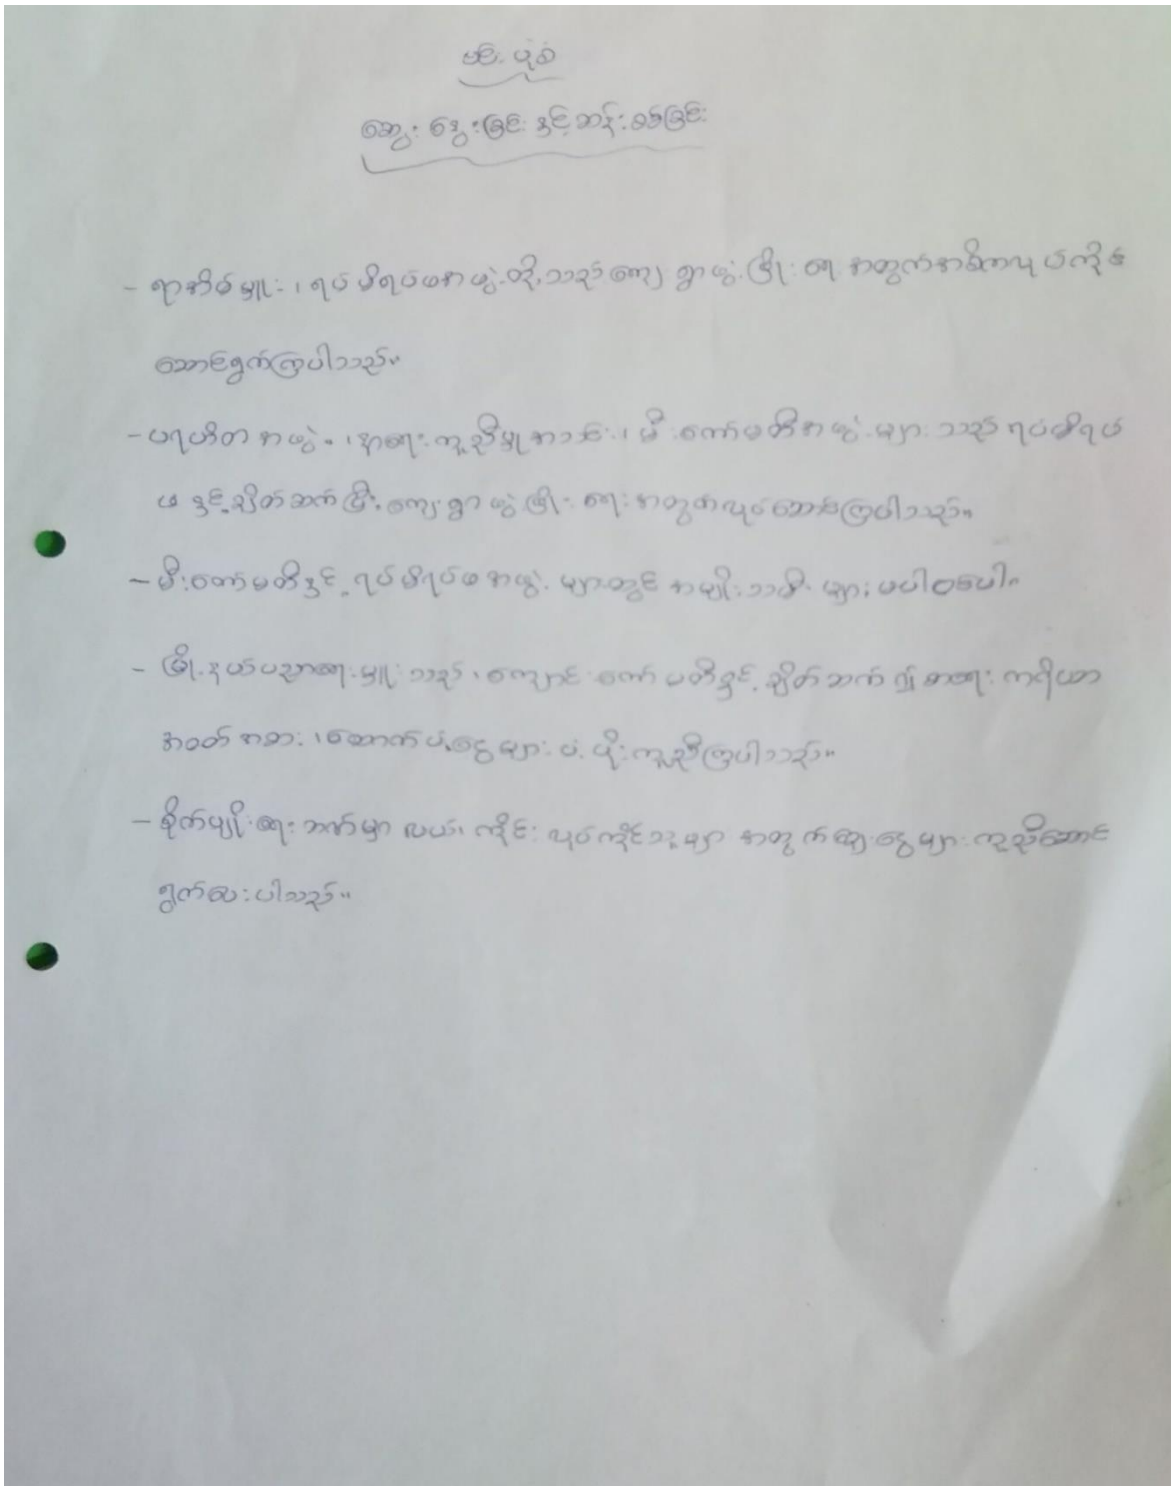 ဗင်း ပုံစံ
ဆွေး နွေးခြင်း နှင့် ဆန်းစစ်ခြင်း
- ရာအိမ်မှူး ၊ ရပ်မိရပ်ဖအဖွဲ့တို့သည် ကျေးရွာဖွံ့ဖြိုးရေးအတွက်အဓိကလုပ်ကိုင်
ဆောင်ရွက်ကြပါသည်။
- ပရဟိတအဖွဲ့ ၊ နာရေးကူညီမှုအသင်း ၊ မီးကော်မတီအဖွဲ့များသည် ရပ်မိရပ်
ဖ နှင့်ချိတ်ဆက်ပြီး ကျေးရွာဖွံ့ဖြိုးရေးအတွက်လုပ်ဆောင်ကြပါသည်။
- မီးကော်မတီနှင့် ရပ်မိရပ်ဖအဖွဲ့များတွင် အမျိုးသမီးများ မပါဝင်ပါ။
- မြို့နယ်ပညာရေးမှူးသည် ၊ ကျောင်းကော်မတီနှင့် ချိတ်ဆက်၍ စာရေးကိရိယာ
အဝတ်အစား ၊ ထောက်ပံ့ငွေများ ပံ့ပိုးကူညီကြပါသည်။
- စိုက်ပျိုးရေးဘဏ်မှာ လယ်၊ ကိုင်းလုပ်ကိုင်သူများအတွက်ချေးငွေများ ကူညီဆောင်
ရွက်ပေးပါသည်။